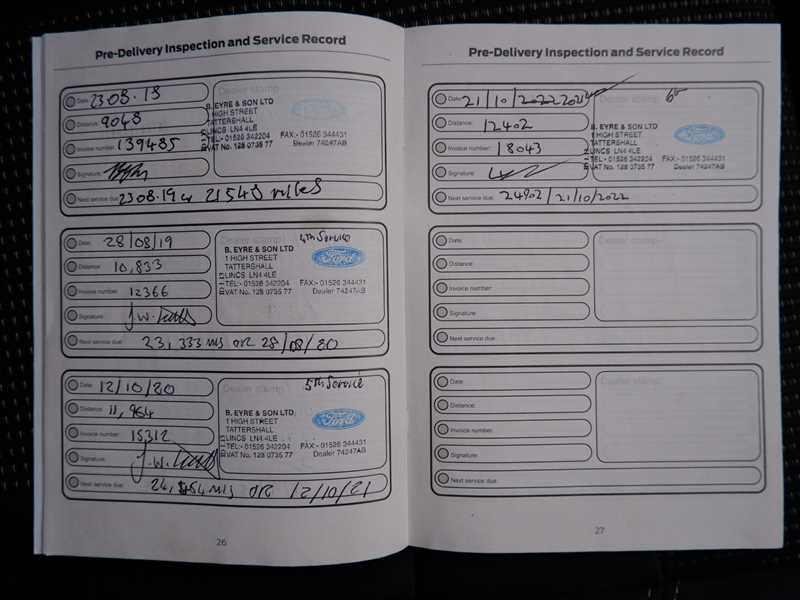 Pre-Delivery Inspection and Service Record
Date: 23.08.18
Distance: 9048
Invoice number: 139485
Signature:
Next service due: 23 08.19 or 21548 miles
Dealer stamp
B. EYRE & SON LTD
1 HIGH STREET
TATTERSHALL
LINCS LN4 4LE
TEL:- 01526 342204 FAX:- 01526 344431
VAT No. 128 0735 77 Dealer 74247AB
Ford
Date: 28/08/19
Distance: 10,833
Invoice number: 12366
Signature:
Next service due: 23,333 mls or 28/08/20
Dealer stamp
4th Service
B. EYRE & SON LTD
1 HIGH STREET
TATTERSHALL
LINCS LN4 4LE
TEL:- 01526 342204 FAX:- 01526 344431
VAT No. 128 0735 77 Dealer 74247AB
Ford
Date: 12/10/20
Distance: 11,954
Invoice number: 15312
Signature:
Next service due: 24,454 mls or 12/10/21
Dealer stamp
5th Service
B. EYRE & SON LTD
1 HIGH STREET
TATTERSHALL
LINCS LN4 4LE
TEL:- 01526 342204 FAX:- 01526 344431
VAT No. 128 0735 77 Dealer 74247AB
Ford
26
Pre-Delivery Inspection and Service Record
Date: 21/10/2022 2021
Distance: 12402
Invoice number: 18043
Signature:
Next service due: 24902/21/10/2022
Dealer stamp
B. EYRE & SON LTD
1 HIGH STREET
TATTERSHALL
LINCS LN4 4LE
TEL:- 01526 342204 FAX:- 01526 344431
VAT No. 128 0735 77 Dealer 74247AB
Ford
Date:
Distance:
Invoice number:
Signature:
Next service due:
Dealer stamp
Date:
Distance:
Invoice number:
Signature:
Next service due:
Dealer stamp
27